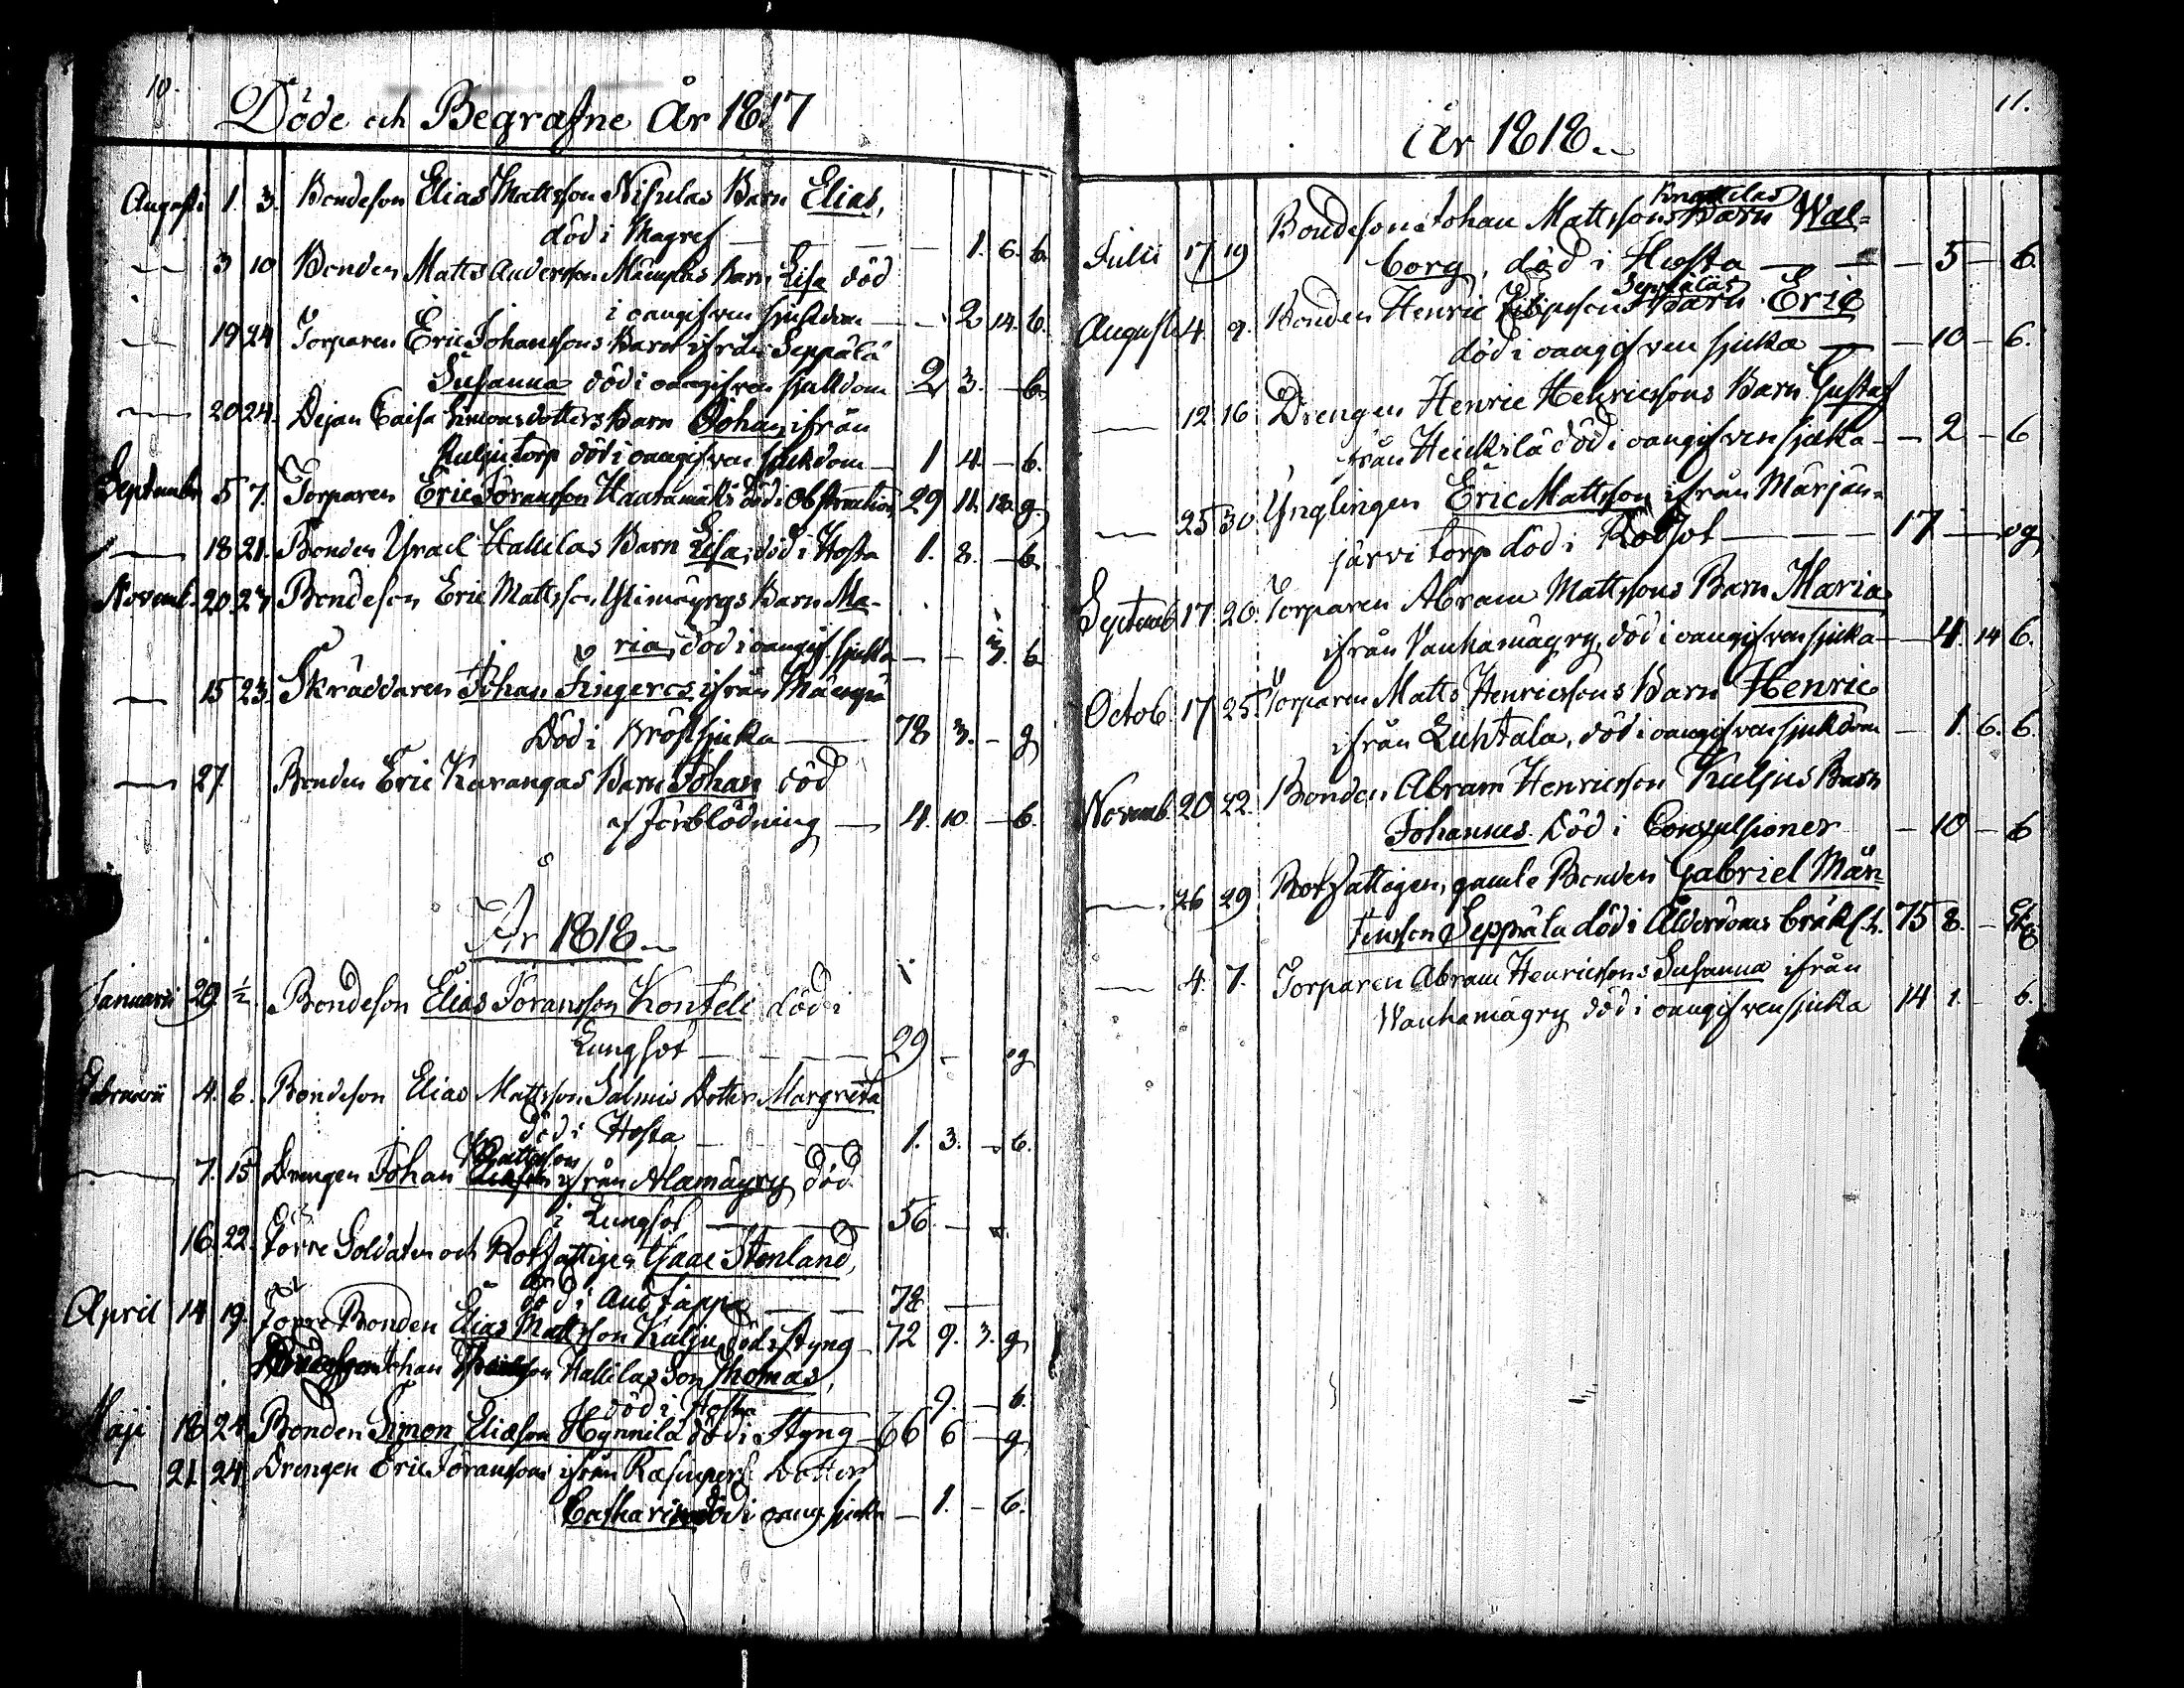 10.
Döde och Begrafne År 1817
Augusti 1. 3. Bondeson Elias Mattsson Nisulas Barn Elias,
död i Magref — — — 1. 6. b.
— 3 10 Bonden Matts Andersson Mäenpäs Barn Lisa död
i oangifven sjukdom — — 2 14. b.
— 19 24 Torparen Eric Johanssons Barn ifrån Seppälä
Susanna död i oangifven sjukdom 2 3. — b.
— 20 24. Pigan Caisa Simonsdotters Barn Johan, ifrån
Kulju torp död i oangifven sjukdom — 1 4. — b.
September 5 7. Torparen Eric Göransson Haatamäki död i Obstruction 29 11. 18. g.
— 18 21. Bonden Israel Hallilas Barn Lisa, död i Hosta 1. 8. — b.
Novemb. 20. 27. Bondeson Eric Mattsson Ylimäyrys Barn Ma-
ria, död i oangif. sjukd — — 3. b
— 15 23. Skräddaren Johan Fingeroos ifrån Mäenpä
död i Bröstsjuka — 78 3. — g
— 27. Bonden Eric Karangas Barn Johan död
af Förblödning — 4. 10. — b.
År 1818.
Januarii 29. ½. Bondeson Elias Göransson Konteli död i
Lungsot — — — 29 — og
Februarii 4. 8. Bondeson Elias Mattsson Salmis Dotter Margreta
död i Hosta — — 1. 3. — b.
— 7. 15 Drengen Johan Mattsson ifrån Alamäyry död
i Lungsot — — 56. —
16. 22. Förre Soldaten och Rotfattigen Isaac Stenland,
död i Andtäppa — — 78 —
April 14 19. Förre Bonden Elias Mattsson Kulju död i Styng — 72 9. 3. g
Johan Hallilas Son Thomas,
död i Hosta 9. — b.
Maji 18 24 Bonden Simon Eliasson Hynnilä död i Styng — 66 6 — g
— 21 24. Drengen Eric Göranssons ifrån Dotter
Catharina död i oang. sjukd — 1. — b.
11.
År 1818.
Knuttilas
Julii 17 19 Bondeson Johan Mattssons Barn Wal-
borg, död i Hosta — — — 5 — b.
Seppäläs
Augusti 4. 9. Bonden Henric Barn Eric
död i oangifven sjuka — — 10 — b.
— 12 16 Drengen Henric Henricssons Barn Gustaf
från Heickilä död i oangifven sjuka — — 2 — b
— 25 30 Ynglingen Eric Mattsson ifrån Märjän-
järvi torp död i Rötsot — — — 17 — og
Septemb. 17. 20. Torparen Abram Mattssons Barn Maria
ifrån Vanhamäyry, död i oangifven sjuka — — 4. 14 b.
Octob. 17 25. Torparen Matts Henricssons Barn Henric
ifrån Luhtala, död i oangifven sjukdom — 1. 6. b.
Novemb. 20 22. Bonden Abram Henricsson Kuljus Barn
Johannes död i Convulsioner — 10 — b
— 26 29 Rotfattigen, gamle Bonden Gabriel Mår-
tensson Seppälä död i Ålderdoms bräkl.h. 75 8. —
— 4. 7. Torparen Abram Henricssons Susanna ifrån
Wanhamäyry död i oangifven sjuka 14 1 — b.